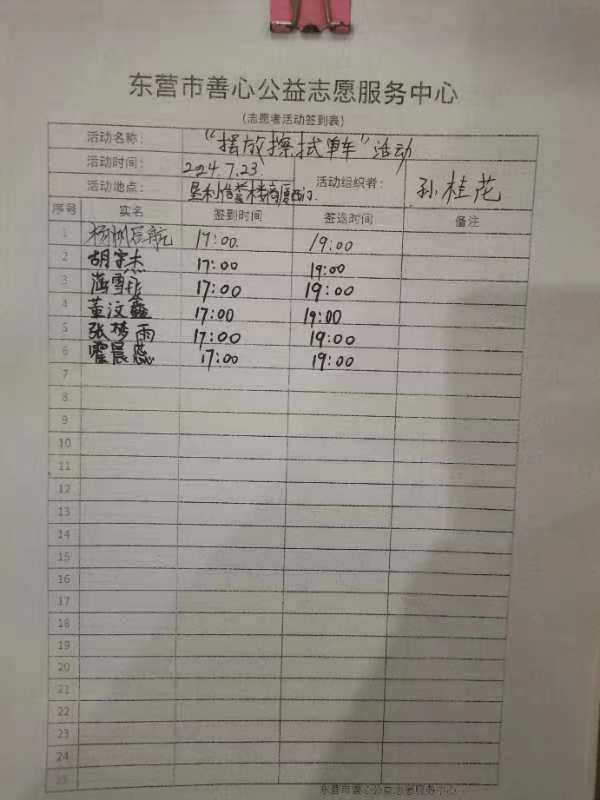 东营市善心公益志愿服务中心
(志愿者活动签到表)
活动名称： “摆放擦拭单车”活动
活动时间： 2024.7.23
活动地点： 垦利信誉楼商厦西门 活动组织者： 孙桂花
序号 实名 签到时间 签退时间 备注
1 17:00 19:00
2 胡宇杰 17:00 19:00
3 17:00 19:00
4 董汶鑫 17:00 19:00
5 张梦雨 17:00 19:00
6 霍晨蕊 17:00 19:00
7
8
9
10
11
12
13
14
15
16
17
18
19
20
21
22
23
24
25
东营市善心公益志愿服务中心